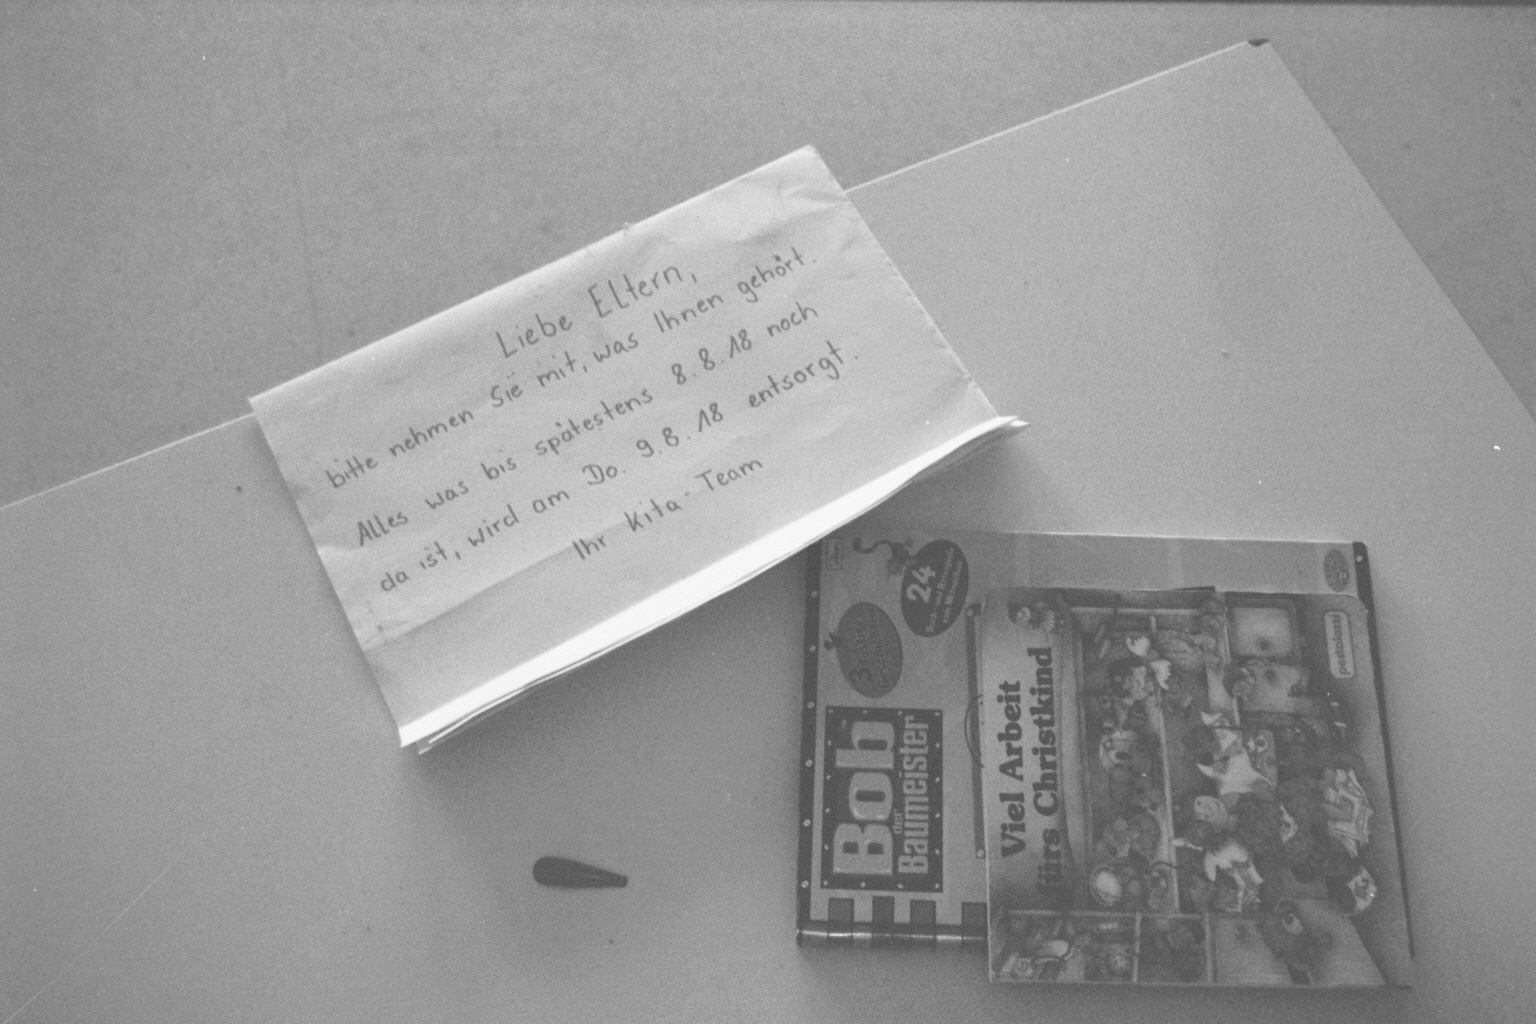 Liebe Eltern,
bitte nehmen Sie mit, was Ihnen gehört.
Alles was bis spätestens 8.8.18 noch
da ist, wird am Do. 9.8.18 entsorgt.
Ihr Kita-Team
24
3
Bob
der
Baumeister
Viel Arbeit
fürs Christkind
pestalozzi